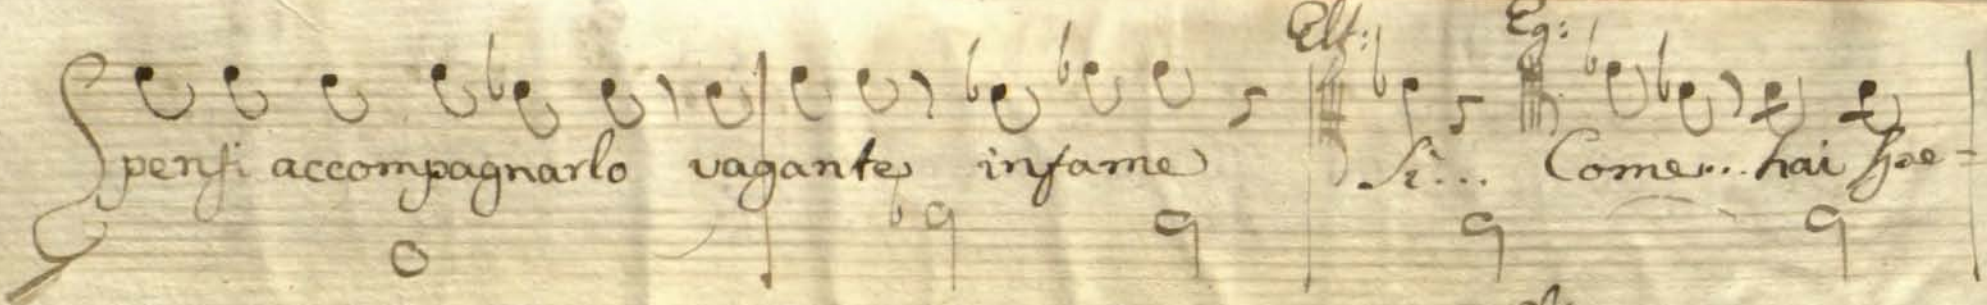 Elf: Eg:
pensi accompagnarlo vagante infame Si... Come... hai